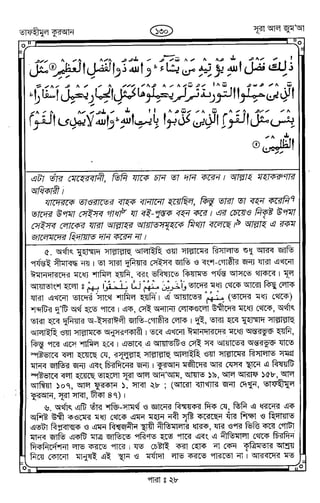 তাফহীমুল কুরআন
১৩০
সূরা আল জুম'আ
ذٰلِكَ فَضْلُ اللهِ يُؤْتِيْهِ مَنْ يَّشَاءُ وَاللهُ ذُو الْفَضْلِ الْعَظِيْمِ ④ مَثَلُ
الَّذِيْنَ حُمِّلُوا التَّوْرٰىةَ ثُمَّ لَمْ يَحْمِلُوْهَا كَمَثَلِ الْحِمَارِ يَحْمِلُ اَسْفَارًا
بِئْسَ مَثَلُ الْقَوْمِ الَّذِيْنَ كَذَّبُوْا بِاٰيٰتِ اللهِ وَاللهُ لَا يَهْدِى الْقَوْمَ
الظّٰلِمِيْنَ ⑤
এটা তাঁর মেহেরবানী, তিনি যাকে চান তা দান করেন। আল্লাহ মহাকরুণার
অধিকারী।
যাদেরকে তাওরাতের বাহক বানানো হয়েছিল, কিন্তু তারা তা বহন করেনি৭
তাদের উপমা সেইসব গাধা৮ যা বই-পুস্তক বহন করে। এর চেয়েও নিকৃষ্ট উপমা
সেইসব লোকের যারা আল্লাহর আয়াতসমূহকে মিথ্যা বলেছে।৯ আল্লাহ এ রকম
জালেমদের হিদায়াত দান করেন না।
৫. অর্থাৎ মুহাম্মাদ সাল্লাল্লাহু আলাইহি ওয়া সাল্লামের রিসালাত শুধু আরব জাতি
পর্যন্তই সীমাবদ্ধ নয়। তা সারা দুনিয়ার সেইসব জাতি ও বংশ-গোষ্ঠীর জন্য যারা এখনো
ঈমানদারদের মধ্যে শামিল হয়নি, বরং ভবিষ্যতে কিয়ামত পর্যন্ত আসতে থাকবে। মূল
আয়াতাংশ হলো: وَاٰخَرِيْنَ مِنْهُمْ لَمَّا يَلْحَقُوْا بِهِمْ তাদের মধ্য থেকে আরো কিছু লোক
যারা এখনো তাদের সাথে শামিল হয়নি। এ আয়াতের مِنْهُمْ (তাদের মধ্য থেকে)
শব্দটির দু'টি অর্থ হতে পারে। এক, সেই অন্যান্য লোকগুলো উম্মীদের মধ্যে থেকে, অর্থাৎ
তারা হবে দুনিয়ার অ-ইসরাঈলী জাতি-গোষ্ঠীর লোক। দুই, তারা হবে মুহাম্মাদ সাল্লাল্লাহু
আলাইহি ওয়া সাল্লামকে অনুসরণকারী। তবে এখনো ঈমানদারদের মধ্যে অন্তরভুক্ত হয়নি,
কিন্তু পরে এসে শামিল হবে। এভাবে এ আয়াতটিও সেই সব আয়াতের অন্তরভুক্ত যাতে
স্পষ্টভাবে বলা হয়েছে যে, রসূলুল্লাহ সাল্লাল্লাহু আলাইহি ওয়া সাল্লামের রিসালাত সমগ্র
মানব জাতির জন্য এবং চিরদিনের জন্য। কুরআন মজীদের আর যেসব স্থানে এ বিষয়টি
স্পষ্টভাবে বলা হয়েছে তাহলো সূরা আল আন'আম, আয়াত ১৯, আল আরাফ ১৫৮, আল
আম্বিয়া ১০৭, আল ফুরকান ১, সাবা ২৮; (আরো ব্যাখ্যার জন্য দেখুন, তাফহীমুল
কুরআন, সূরা সাবা, টীকা ৪৭)।
৬. অর্থাৎ এটা তাঁর শক্তি-সামর্থ ও জ্ঞানের বিস্ময়কর দিক যে, তিনি এ ধরনের এক
অশিষ্ট উম্মী কওমের মধ্য থেকে এমন মহান নবী সৃষ্টি করেছেন যাঁর শিক্ষা ও হিদায়াত
এতটা বিপ্লবাত্মক ও এমন বিশ্বজনীন স্থায়ী নীতিমালার ধারক, যার ওপর ভিত্তি করে গোটা
মানব জাতি একটি মাত্র জাতিতে পরিণত হতে পারে এবং এ নীতিমালা থেকে চিরদিন
দিকনির্দেশনা লাভ করতে পারে। যত চেষ্টাই করা হোক না কেন কৃত্রিমতার আশ্রয়
নিয়ে কোনো মানুষই এই স্থান ও মর্যাদা লাভ করতে পারতো না। আরবদের মত
পারা : ২৮